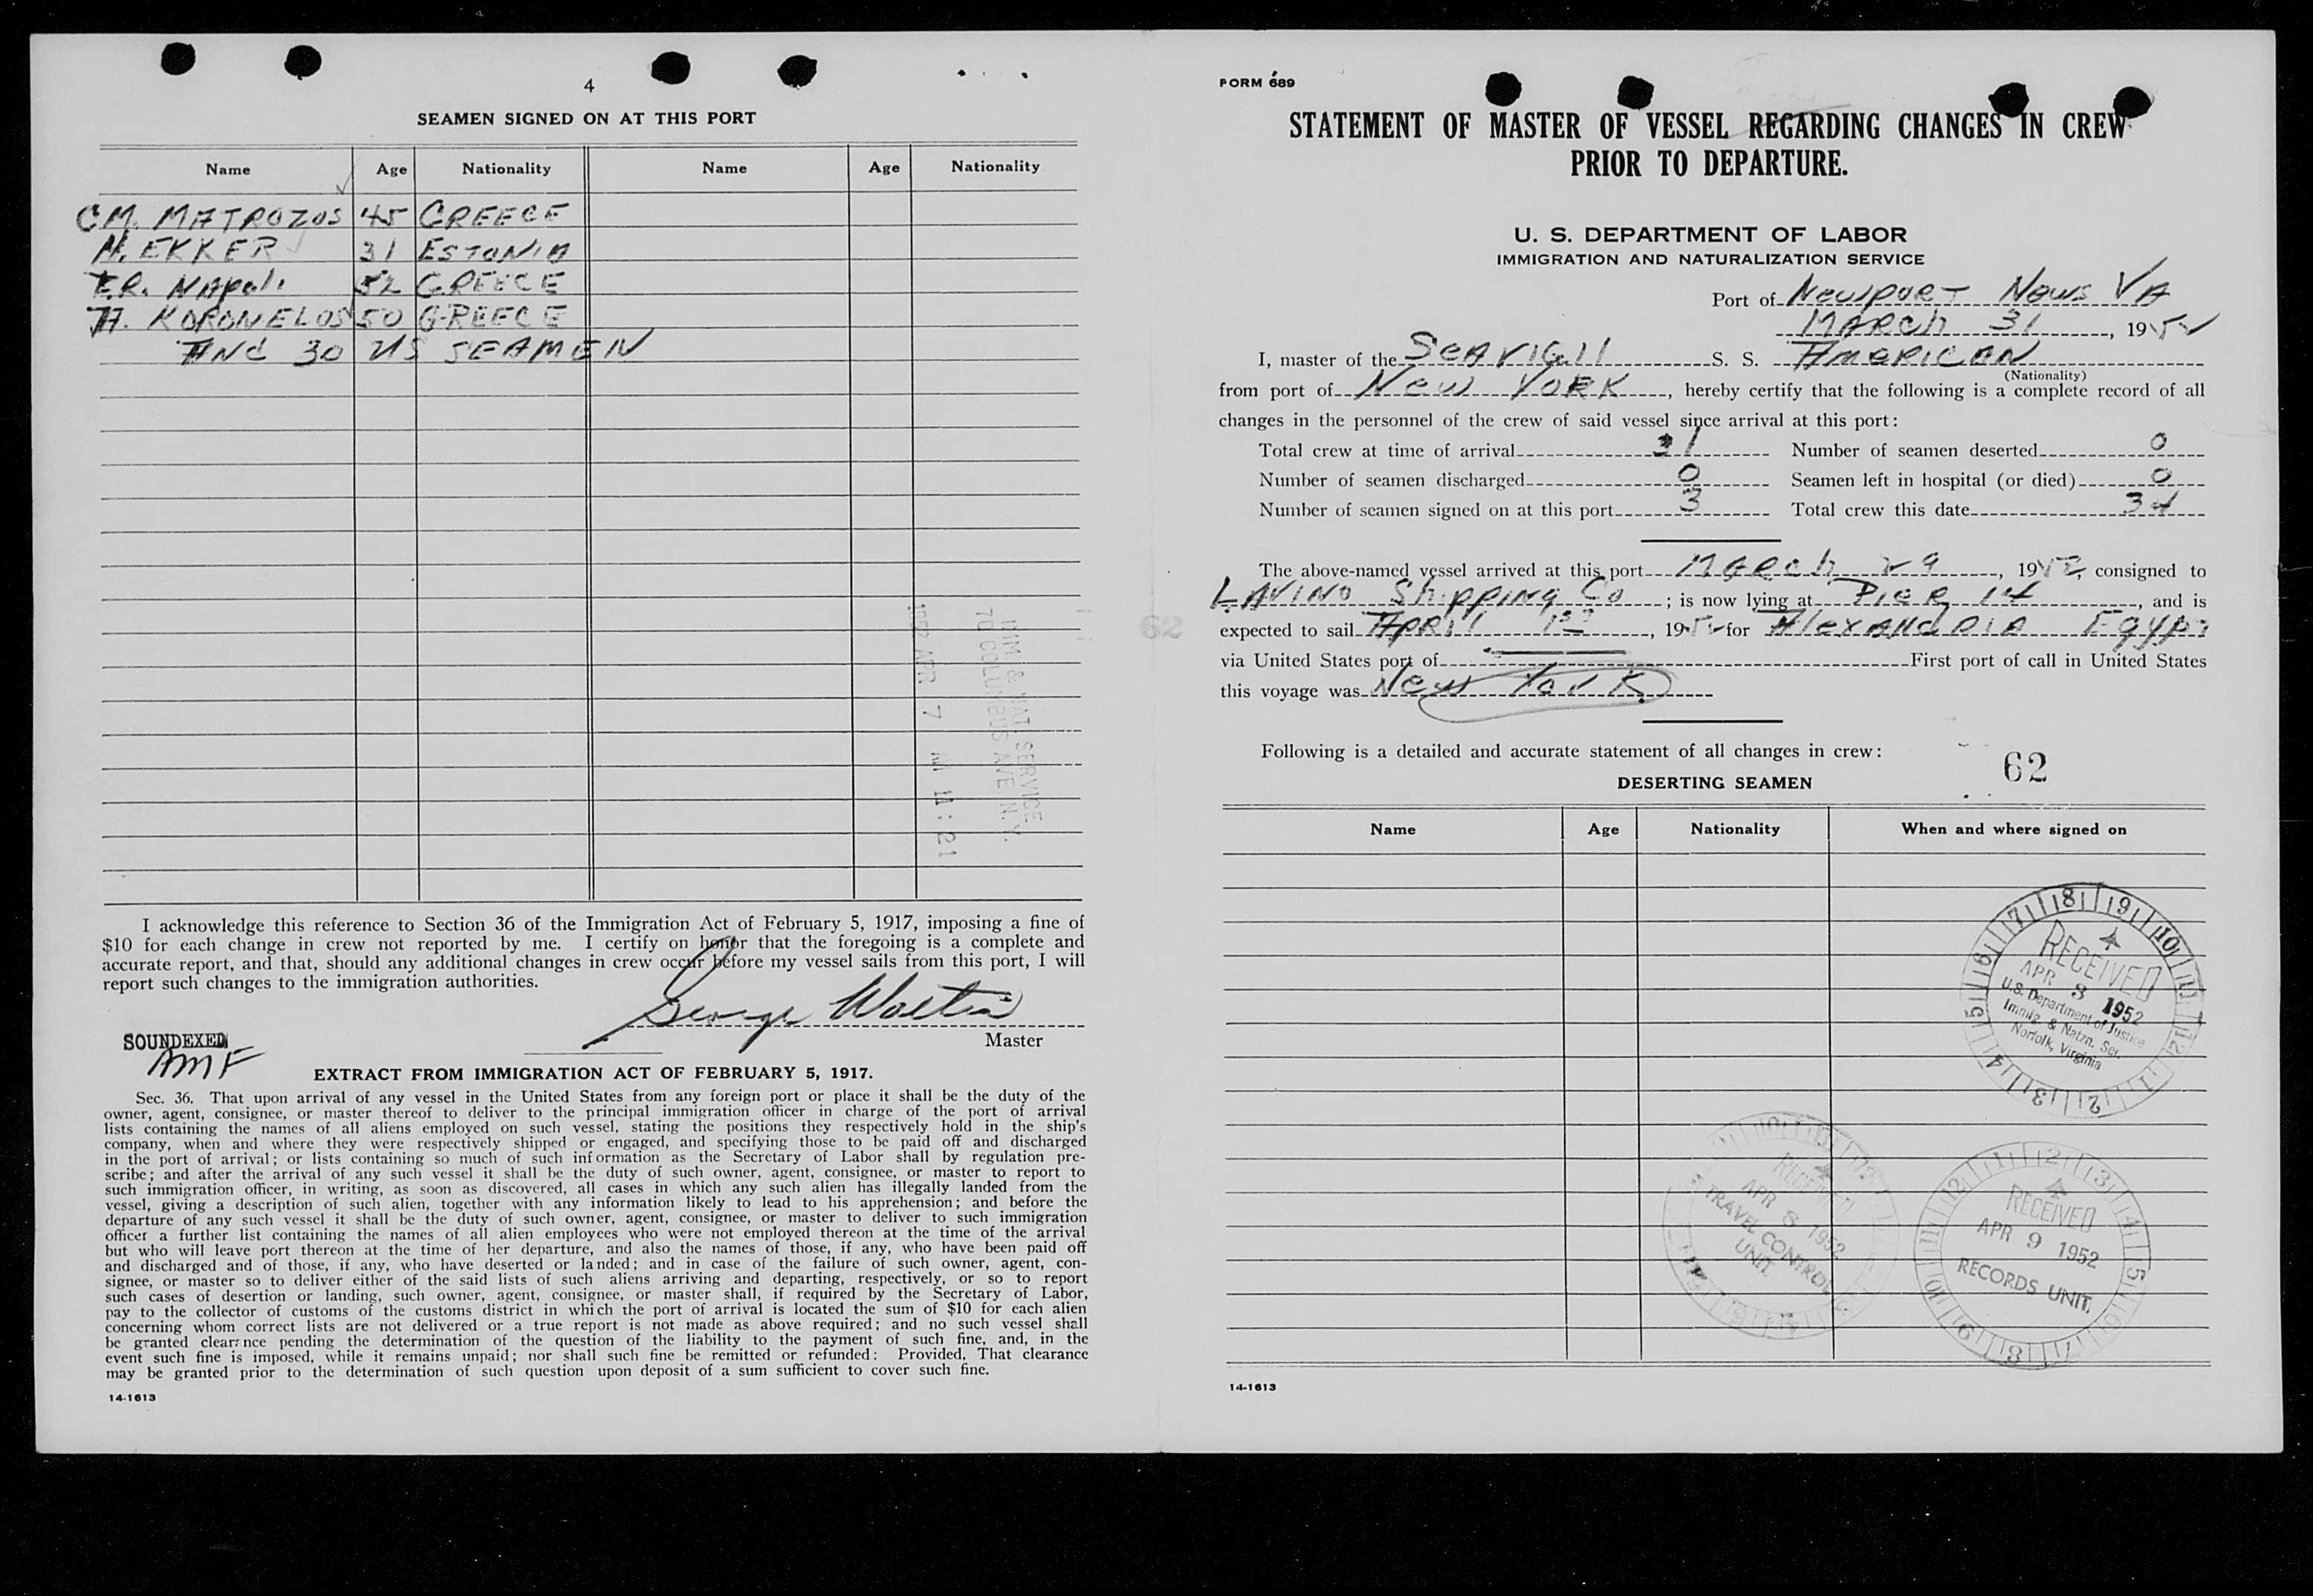 4
SEAMEN SIGNED ON AT THIS PORT
Name Age Nationality Name Age Nationality
CM. MATROZOS 45 GREECE
N. EKKER 31 ESTONIA
F.R. NApoli 52 GREECE
H. KORONELOS 50 GREECE
AND 30 US SEAMEN
IMM & NAT. SERVICE
70 COLUMBUS AVE. N.Y.
1952 APR 7 AM 11:21
I acknowledge this reference to Section 36 of the Immigration Act of February 5, 1917, imposing a fine of
$10 for each change in crew not reported by me. I certify on honor that the foregoing is a complete and
accurate report, and that, should any additional changes in crew occur before my vessel sails from this port, I will
report such changes to the immigration authorities.
George Walter
Master
SOUNDEXED
AMF
EXTRACT FROM IMMIGRATION ACT OF FEBRUARY 5, 1917.
Sec. 36. That upon arrival of any vessel in the United States from any foreign port or place it shall be the duty of the
owner, agent, consignee, or master thereof to deliver to the principal immigration officer in charge of the port of arrival
lists containing the names of all aliens employed on such vessel, stating the positions they respectively hold in the ship's
company, when and where they were respectively shipped or engaged, and specifying those to be paid off and discharged
in the port of arrival; or lists containing so much of such information as the Secretary of Labor shall by regulation pre-
scribe; and after the arrival of any such vessel it shall be the duty of such owner, agent, consignee, or master to report to
such immigration officer, in writing, as soon as discovered, all cases in which any such alien has illegally landed from the
vessel, giving a description of such alien, together with any information likely to lead to his apprehension; and before the
departure of any such vessel it shall be the duty of such owner, agent, consignee, or master to deliver to such immigration
officer a further list containing the names of all alien employees who were not employed thereon at the time of the arrival
but who will leave port thereon at the time of her departure, and also the names of those, if any, who have been paid off
and discharged and of those, if any, who have deserted or landed; and in case of the failure of such owner, agent, con-
signee, or master so to deliver either of the said lists of such aliens arriving and departing, respectively, or so to report
such cases of desertion or landing, such owner, agent, consignee, or master shall, if required by the Secretary of Labor,
pay to the collector of customs of the customs district in which the port of arrival is located the sum of $10 for each alien
concerning whom correct lists are not delivered or a true report is not made as above required; and no such vessel shall
be granted clearance pending the determination of the question of the liability to the payment of such fine, and, in the
event such fine is imposed, while it remains unpaid; nor shall such fine be remitted or refunded: Provided, That clearance
may be granted prior to the determination of such question upon deposit of a sum sufficient to cover such fine.
14-1613
FORM 689
STATEMENT OF MASTER OF VESSEL REGARDING CHANGES IN CREW
PRIOR TO DEPARTURE.
U. S. DEPARTMENT OF LABOR
IMMIGRATION AND NATURALIZATION SERVICE
Port of Newport News VA
MARCH 31, 1952
I, master of the SEAVIGIL S. S. AMERICAN
(Nationality)
from port of New YORK, hereby certify that the following is a complete record of all
changes in the personnel of the crew of said vessel since arrival at this port:
Total crew at time of arrival 31 Number of seamen deserted 0
Number of seamen discharged 0 Seamen left in hospital (or died) 0
Number of seamen signed on at this port 3 Total crew this date 34
The above-named vessel arrived at this port MARCH 29, 1952, consigned to
LAVINO Shipping Co; is now lying at PIER 14, and is
expected to sail APRIL 1st, 1952 for AlexANdRIA Egypt
via United States port of First port of call in United States
this voyage was New York
Following is a detailed and accurate statement of all changes in crew:
62
DESERTING SEAMEN
Name Age Nationality When and where signed on
RECEIVED
APR 3 1952
U.S. Department of Justice
Immig. & Natzn. Ser.
Norfolk, Virginia
RECEIVED
APR 8 1952
TRAVEL CONTROL
UNIT.
RECEIVED
APR 9 1952
RECORDS UNIT.
14-1613